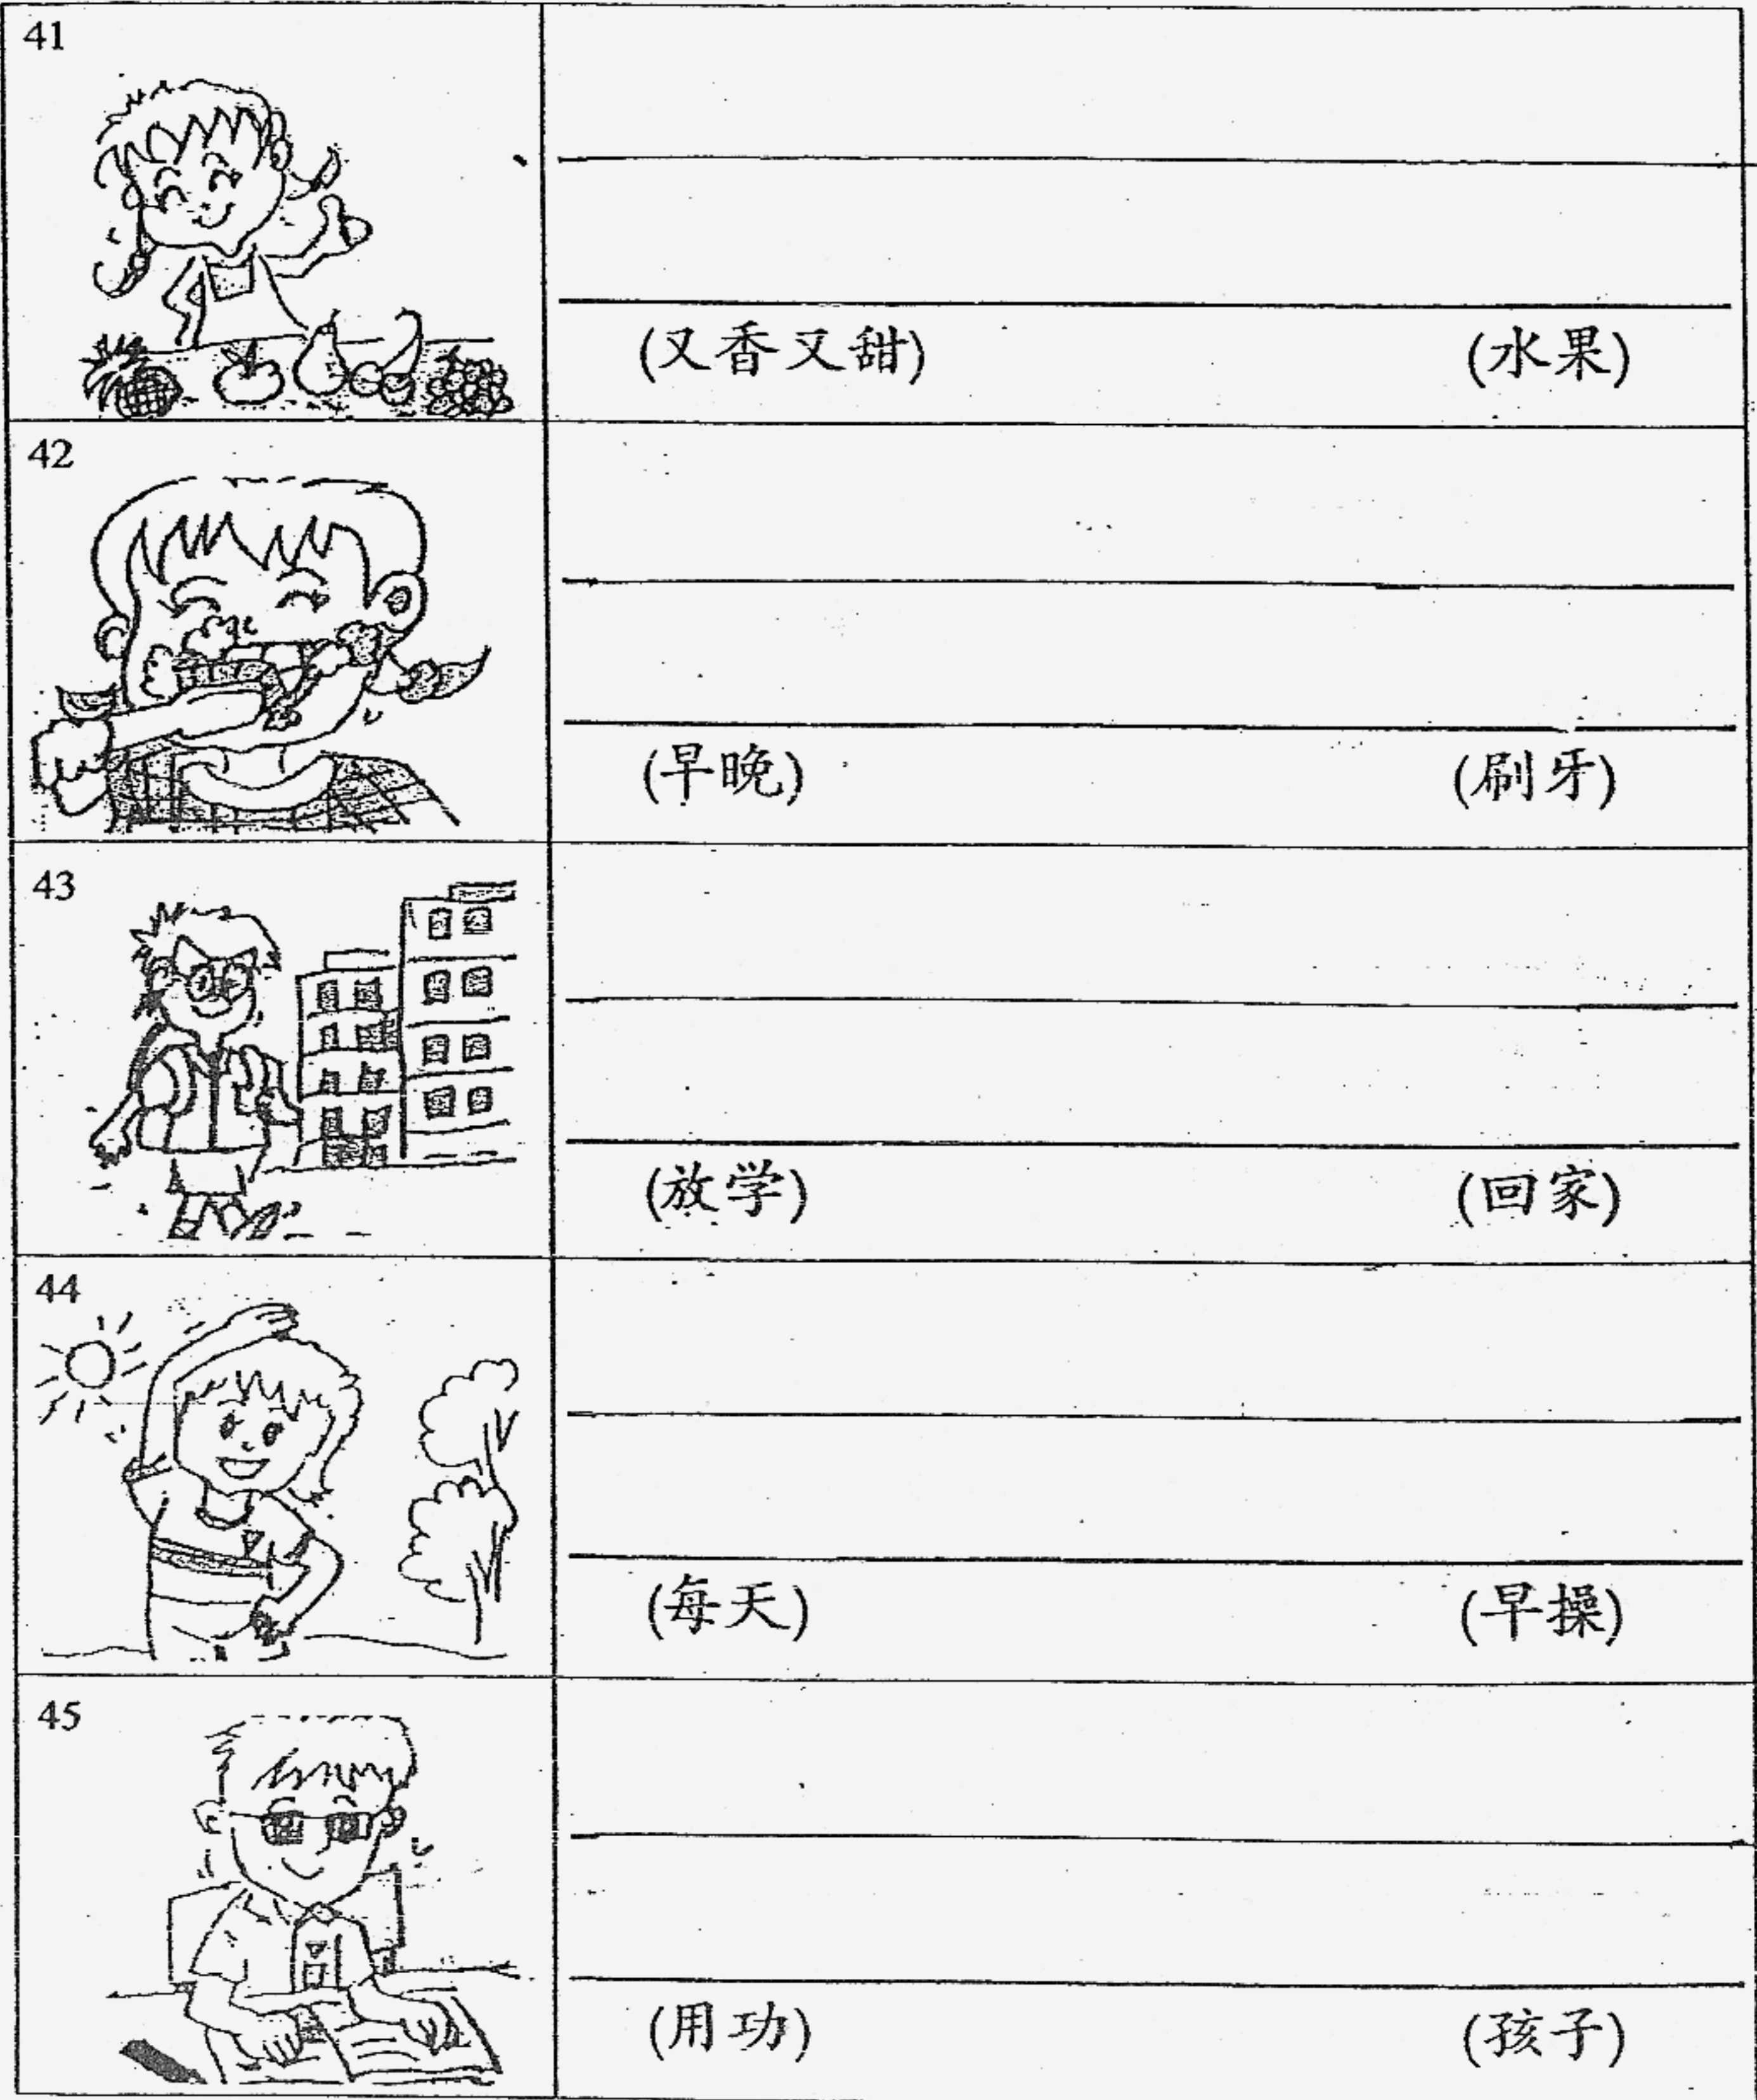 41
(又香又甜) (水果)
42
(早晚) (刷牙)
43
(放学) (回家)
44
(每天) (早操)
45
(用功) (孩子)